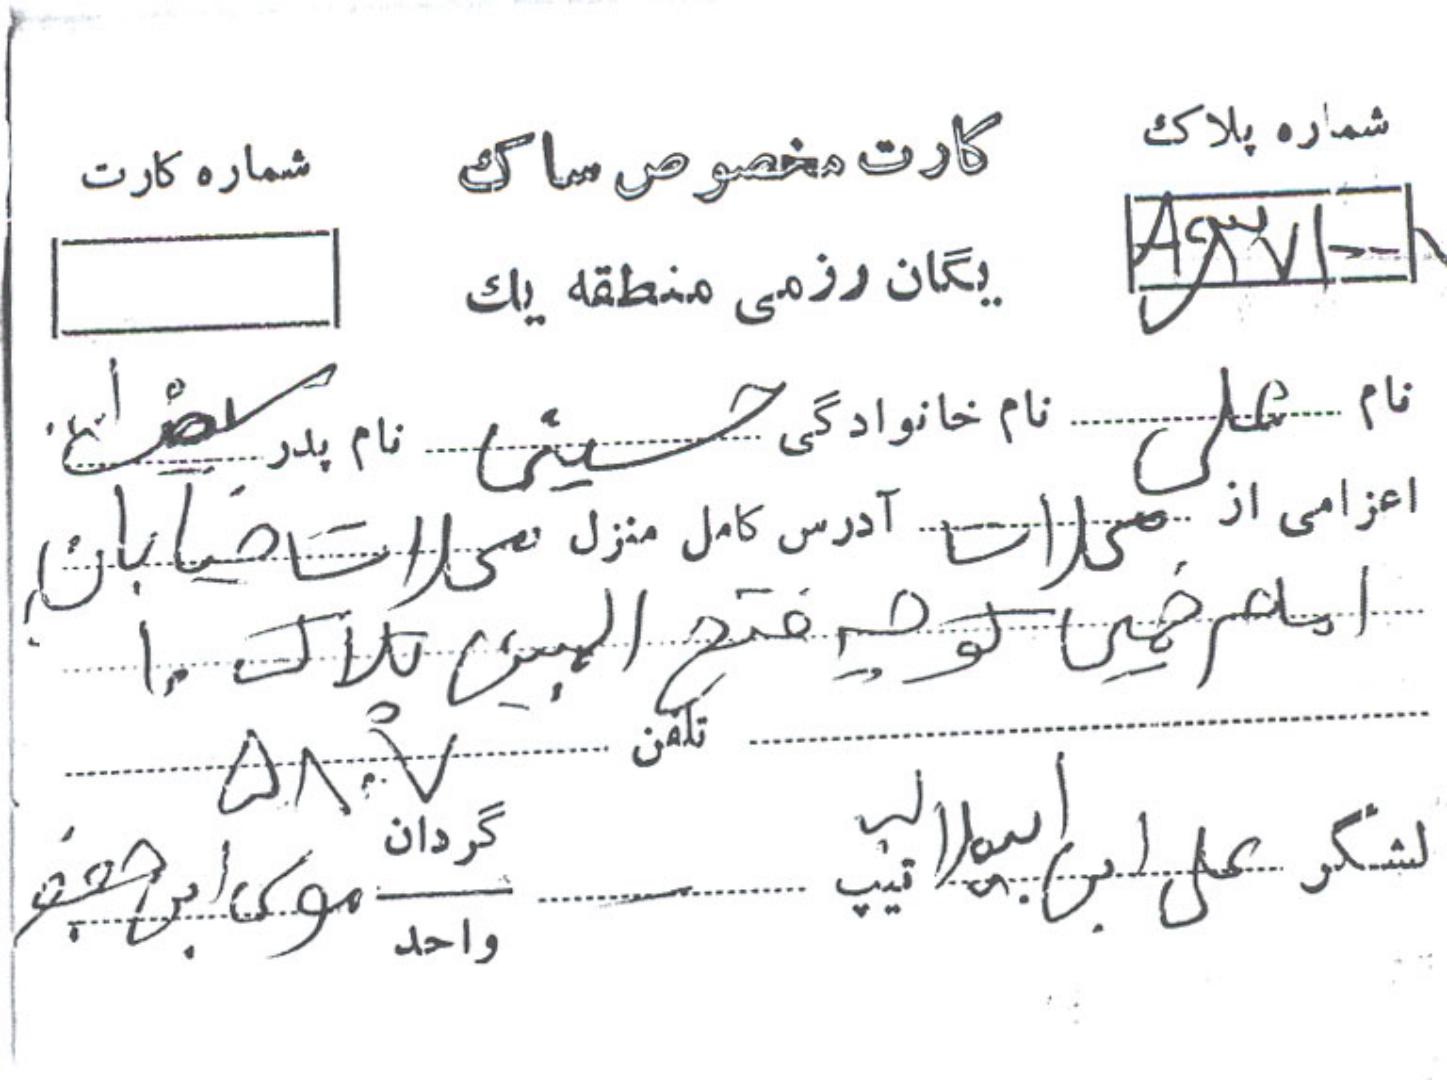 شماره پلاک کارت مخصوص ساک شماره کارت
یگان رزمی منطقه یک
نام علی نام خانوادگی حسینی نام پدر
اعزامی از محلات آدرس کامل منزل محلات خیابان
امام خمینی کوچه فتح المبین پلاک ۱۰
تلفن ۵۸۰۷
لشگر علی ابن ابیطالب تیپ — گردان موسی ابن جعفر
واحد